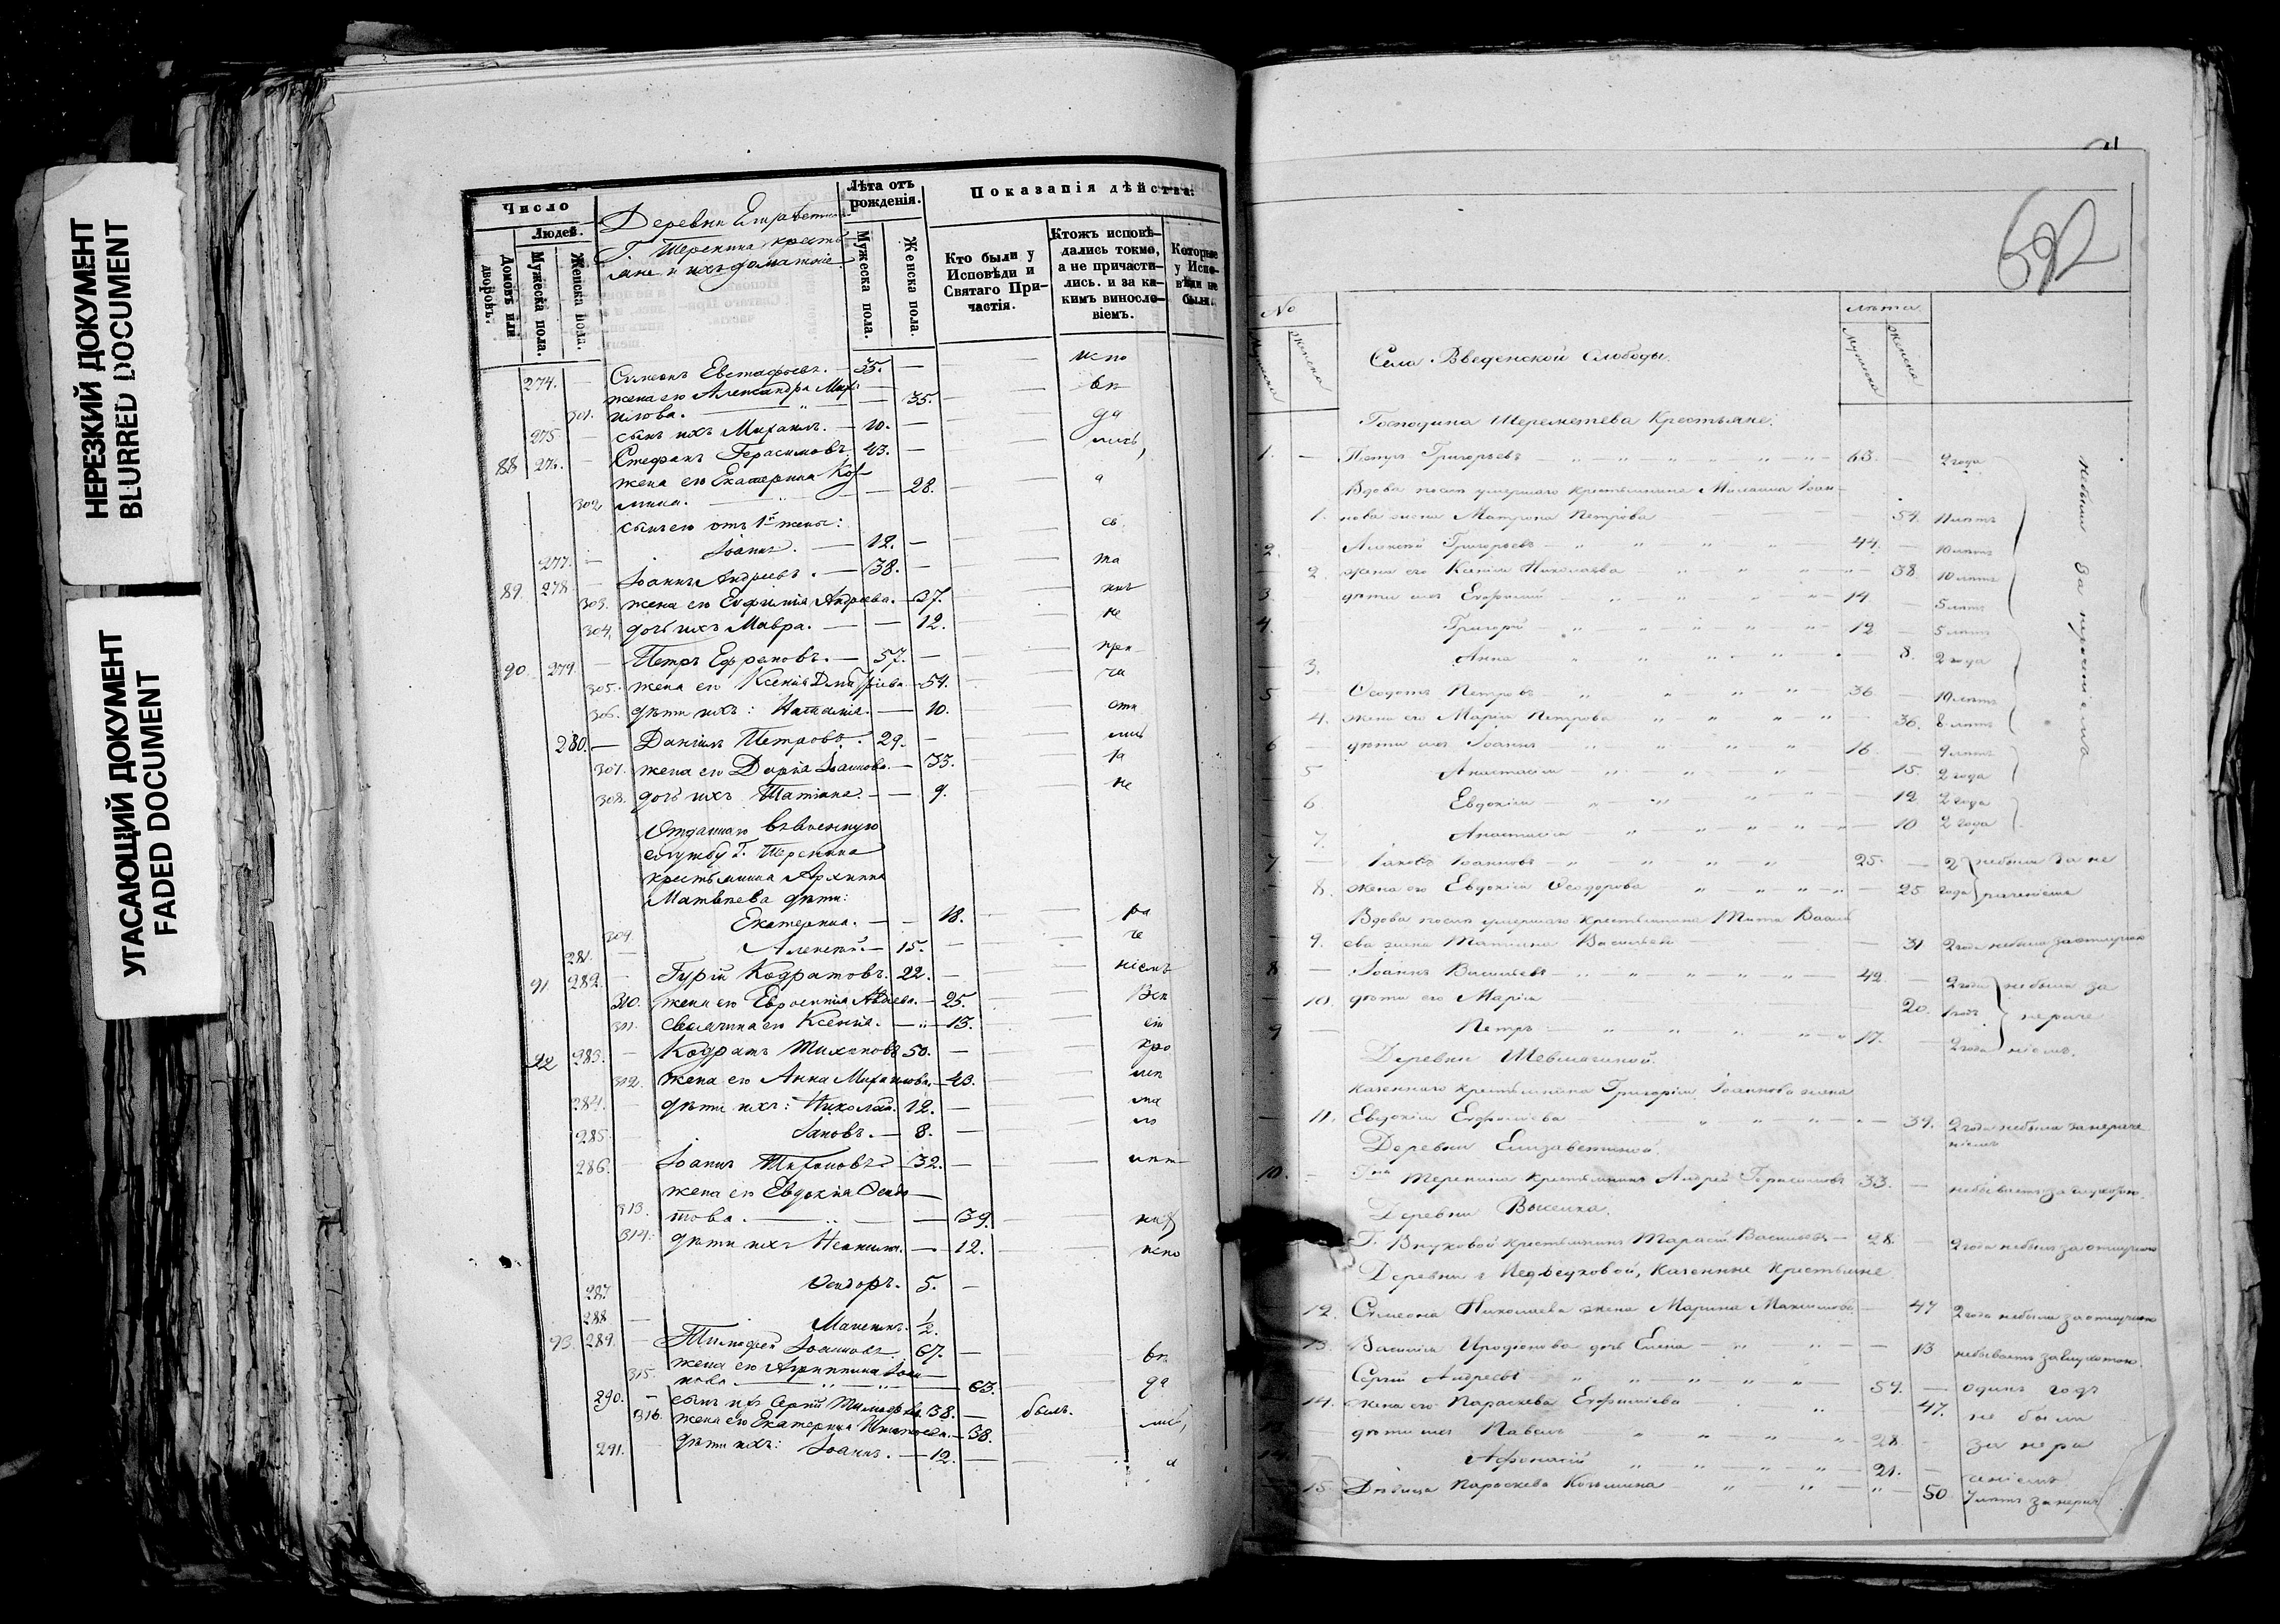 НЕРЕЗКИЙ ДОКУМЕНТ
BLURRED DOCUMENT
УГАСАЮЩИЙ ДОКУМЕНТ
FADED DOCUMENT
Число
Людей.
Домовъ или дворовъ.
Мужеска пола.
Женска пола.
Деревни Елизаветиной
Г. Терепина кресть
яне и ихъ домашніе.
Лѣта отъ рожденія.
Мужеска пола.
Женска пола.
Показанія дѣйства:
Кто были у Исповѣди и Святаго Причастія.
Ктожъ исповѣ-
дались токмо,
а не причасти-
лись. и за ка-
кимъ виносло-
віемъ.
Которые
у Испо-
вѣди не
были.
274. — Симеонъ Евстафьевъ. — 35. — испо
жена его Александра Мих вѣ
301. илова. — 35.
275. — сынъ ихъ Михаилъ. — 10. — да
88 276. — Стефанъ Герасимовъ. 43. — лись,
жена его Екатерина Коз
302. мина. — 28. — а
сынъ его отъ 1й жены: съ
277. — Іоаннъ. — 12. —
89. 278. — Іоаннъ Андреевъ. — 38. — та
303. жена его Евфимія Андреева. — 37.
304. дочь ихъ Мавра. — — 12. не
90. 279. — Петръ Ефремовъ. — 57. — при
305. жена его Ксенія Дмитріева. — 54. ча
306. дѣти ихъ: Наталія. — 10. сти
280. — Даніилъ Петровъ. 29. — лись
307. жена его Дарія Іоаннова. — 33. за
308. дочь ихъ Татіана. — — 9. не
Отданнаго въ военную
службу Г. Терепина
крестьянина Архипа
Матвѣева дѣти:
309. Екатерина. — — 18. ра
281. — Алексѣй. — 15. — че
91. 282. — Гурій Кодратовъ. 22. — ніемъ
310. жена его Евросинія Авдеева. — 25. Вси
311. своячина его Ксенія. — 13.
92 283. — Кодратъ Тихоновъ 50. — кро
312. жена его Анна Михаилова. — 43.
284. — дѣти ихъ: Николай. 12. —
285. Іаковъ. — 8. —
286. — Іоаннъ Тихоновъ. — 32. —
жена его Евдокія Федо
313. това. — 39.
314. дѣти ихъ 12. испо
287. Ѳеодоръ. 5. —
288 — 1/2.
93. 289. — Тимофей Іоанновъ. 67. — вѣ
жена его Агриппина Іоан
315. нова — 63. да
290. — сынъ их Сергій Тимофѣев. 38. — былъ.
316. жена его Екатерина Игнатьева. — 38. лись,
291. дѣти ихъ: Іоаннъ. — 12. — а
692
No
Мужеска
Женска
Села Введенской Слободы.
лѣта
Мужеска
Женска
Господина Шереметева Крестьяне.
небыли за нераченіемъ
1. — Петръ Григорьевъ 63. — 2 года
Вдова послѣ умершаго крестьянина Михаила Іоан
1. нова жена Матрона Петрова 54. 11 лѣтъ
2. Алексѣй Григорьевъ 44. — 10 лѣтъ
2 жена его Ксенія Николаева 38. 10 лѣтъ
3 дѣти ихъ Евфимій 14. — 5 лѣтъ
4. Григорій 12 — 5 лѣтъ
3. Анна 8. 2 года
5 Ѳеодотъ Петровъ 36 — 10 лѣтъ
4. жена его Марія Петрова 36. 8 лѣтъ
6 — дѣти ихъ Іоаннъ 16. — 9 лѣтъ
5 Анастасія 15. 2 года
6 Евдокія 12 2 года
7. Анастасія 10 2 года
7 — Іаковъ Іоанновъ 25. — 2 небыли за не
8. жена его Евдокія Ѳеодорова 25 года раченіемъ
Вдова послѣ умершаго крестьянина Тита Васил
9. ева жена Татіана Васильева 31 2 года небыла за отлучкою
8 — Іоаннъ Васильевъ 42. — 2 года небыли за
10. дѣти его Марія 20. 1 годъ нераче
9 — Петръ 17. — 2 года ніемъ.
Деревни Шевлягиной.
казеннаго крестьянина Григорія Іоаннова жена
11. Евдокія Евфиміева 39. 2 года небыла за нераче
ніемъ
Деревни Елизаветиной.
10. — Г-на Терепина крестьянинъ Андрей Герасимовъ 33. —
Деревни Выселка.
Г. Внуковой крестьянинъ Тарасій Васильевъ — 28. — 2 года небылъ за отлучкою
Деревни Медведковой, казенные крестьяне
12. Симеона Николаева жена Марина Максимова — 47 2 года небыла за отлучкою
13. Василія Иродіонова дочь Елена — 13
Сергій Андреевъ 54. — одинъ годъ
14. жена его Параскева Евфиміева 47. не были
дѣти ихъ Павелъ 28. за нера
Афонасій 21. — ченіемъ
15. Дѣвица Параскева Козьмина 50 7 лѣтъ за нерач